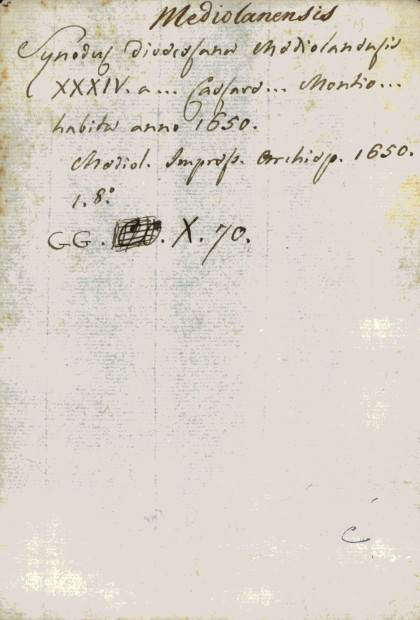 Mediolanensis
Synodus Dioecesana Mediolanensis
XXXIV. a... Caesare... Montio...
habita anno 1650.
Mediol. Impress. Archiep. 1650.
1. 8.°
GG. X. 70.
C